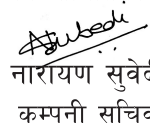 नारायण सुवेदी
कम्पनी सचिव